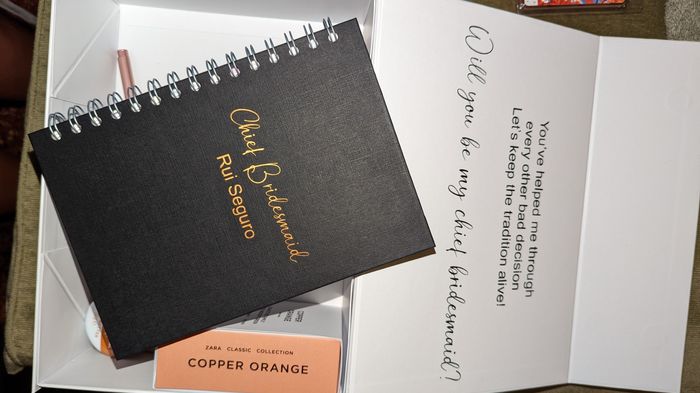 Chief Bridesmaid
Rui Seguro
You've helped me through
every other bad decision
Let's keep the tradition alive!
Will you be my chief bridesmaid?
ZARA CLASSIC COLLECTION
COPPER ORANGE